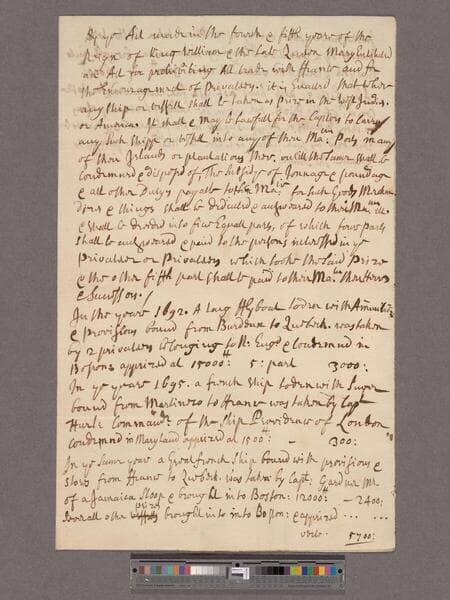 By ye Act made in the fourth & fifth years of the
Reign of King William & the Late Queen Mary Entituled
an Act for prohibiting All trade with France and for
the Encouragement of Privateers. it is enacted that where
any ship or vessell shall be taken as Prize in the West Indies
or America. It shall & may be Lawfull for the Captors to Carry
any such shipp or vessell into any of their Ma:ties Ports in any
of their Islands or plantations there. untill the same shall be
Condemned & disposed of, The Subsidys of Tonnage & poundage
& all other Dutys payable to their Ma:ties for such Goods Merchan
dizes & things shall be deducted & answeared to their Ma:ties
& shall be devided into five Equall parts, of which four parts
shall be answeared & paid to the persons interessed in ye
Privateer or Privateers which tooke the said Prize
& the other fifth part shall be paid to their Ma:ties their heirs
& Successors./
In the year 1692. A Larg flyboat loden with Amunition
& provissions bound from Burdeux to Quebeck. was taken
by 2 privateers belonging to N: Engd & Condemnd in
Boston apprized at 15000: 5: part 3000:
In ye year 1695. a french ship loden with Suger
bound from Martineco to France was taken by Capt
Commandr of the ship Providence of London
Condemnd in Maryland apprized at 1500: – 300:
In ye same year a Great french ship bound with provissions &
stores from France to Quebeck. was taken by Capt: Gardner
of a Jamaica sloop & brought into Boston: 12000: – 2400:
Severall other prizes brought in to into Boston: & apprized ... ...
5700: